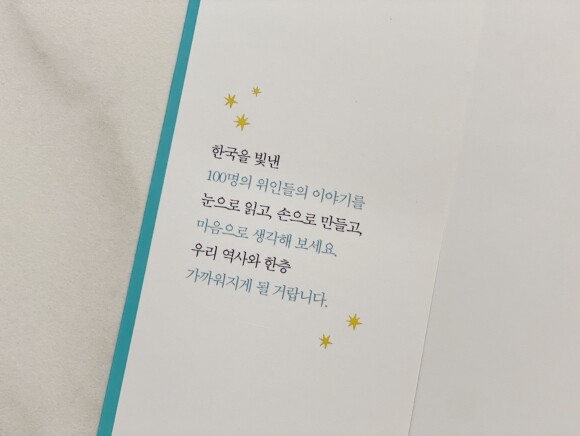 한국을 빛낸
100명의 위인들의 이야기를
눈으로 읽고, 손으로 만들고,
마음으로 생각해 보세요.
우리 역사와 한층
가까워지게 될 거랍니다.